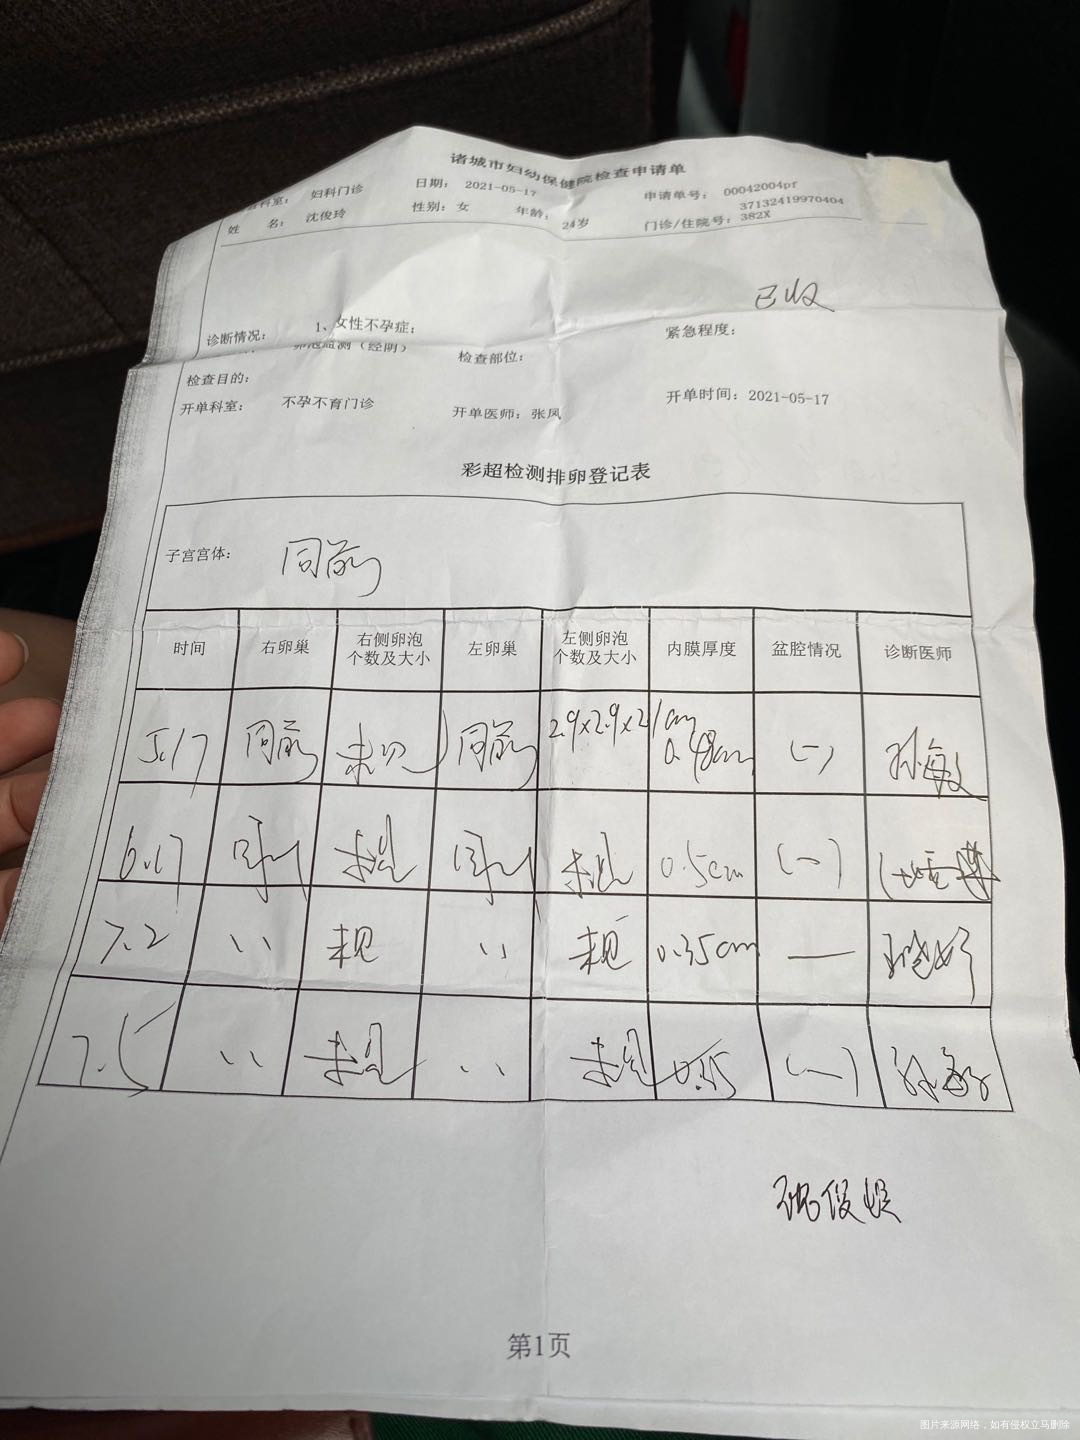 诸城市妇幼保健院检查申请单
科室: 妇科门诊 日期: 2021-05-17 申请单号: 00042004pr
姓 名: 沈俊玲 性别: 女 年龄: 24岁 门诊/住院号: 37132419970404382X
已收
诊断情况: 1、女性不孕症; 紧急程度:
卵泡监测(经阴) 检查部位:
检查目的:
开单科室: 不孕不育门诊 开单医师: 张凤 开单时间: 2021-05-17
彩超检测排卵登记表
子宫宫体: 同前
时间 右卵巢 右侧卵泡个数及大小 左卵巢 左侧卵泡个数及大小 内膜厚度 盆腔情况 诊断医师
5.17 同前 未见 同前 2.9×2.9×2.1cm 0.48cm (一) 孙敏
6.17 同前 未见 同前 未见 0.5cm (一)
7.2 、、 未见 、、 未见 0.35cm —
7.5 、、 未见 、、 未见 (一) 孙敏
第1页
图片来源网络，如有侵权立马删除